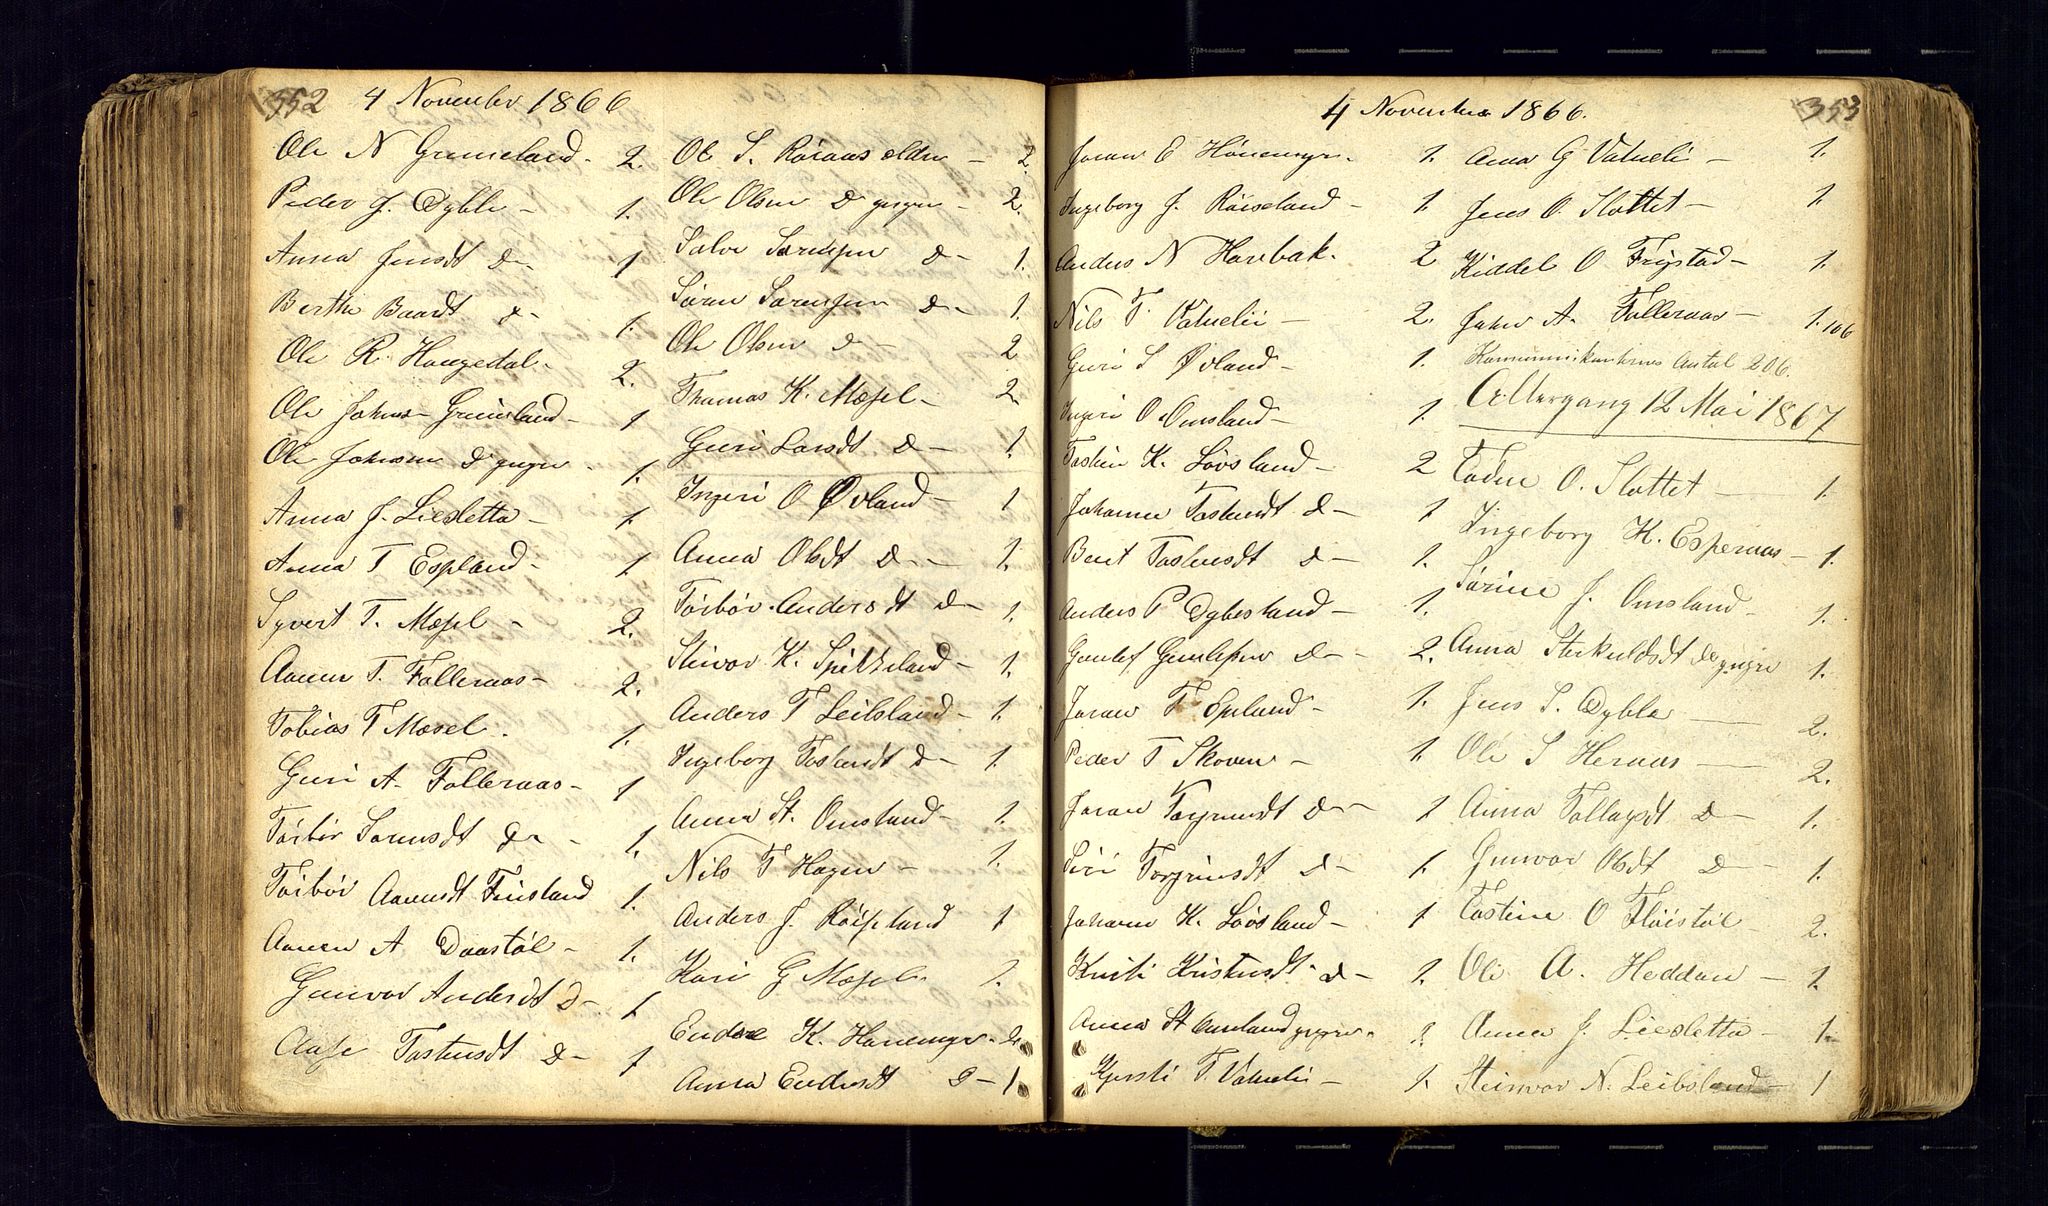 352 4 November 1866
Ole N Grimeland - 2.
Peder J. Dyble - 1.
Anna Jensdt d - 1
Berthe Baardt d - 1.
Ole R. Haugedal - 2.
Ole Johns - Grimeland - 1
Ole Johnsen d yngre - 1.
Anna J. Liesletta - 1.
Anna T Espland - 1
Syvert T. Mæsel - 2.
Aanen T. Falleraas - 2.
Tobias T Mæsel - 1.
Guri A. Falleraas - 1
Törbör Sörensdt d - 1.
Törbör Aanensdt Finsland 1.
Aanen A Daastöl - 1.
Gunvor Andersdt d - 1
Aase Tostensdt d - 1
Ole S. Röiaas eldre - 2
Ole Olsen d yngre - 2.
Salve Sörensen d - 1.
Sören Sörensen d - 1.
Ole Olsen d - 2
Thomas K. Mæsel - 2
Guri Larsdt d - 1.
Ingeri O Øvland - 1
Anna Olsdt d - 1.
Törbör Andersdt d - 1.
Steivor K. Spikkeland - 1.
Anders T Leibsland - 1.
Ingeborg Tostensdt d - 1.
Anna St. Omsland - 1.
Nils T Hagen - 1.
Anders J. Röiseland 1
Kari G Mæsel 1.
Endre K. Hönemyr - 2
Anna Endresdt d - 1
4 November 1866. 353
Joran E Hönemyr - 1.
Ingeborg J. Röiseland - 1.
Anders N Havbak - 2
Nils T. Vatneli - 2.
Guri S Øvland - 1.
Ingeri O. Omsland - 1.
Tosten K. Lövsland - 2
Johanne Tostensdt d - 1
Berit Tostensdt d - 1.
Anders P Dybesland - 1.
Gunlef Gunlefsen d - 2.
Joran T Epland - 1.
Peder T Skoven - 1.
Joran Torgrimsdt d - 1
Siri Torgrimsdt d - 1.
Johanne K. Lövsland - 1
Kristi Kristensdt d - 1.
Anna St Omsland yngre -
Kjersti T. Vatneli - 1.
Anna G Vatneli - 1.
Jens O. Slottet - 1.
Kiddel O Frigstad - 1.
John A. Falleraas - 1. 106
Kommunikanternes Antal 206.
Altergang 12 Mai 1867
Torine O. Slottet - 1.
Ingeborg K. Esperaas - 1.
Sörine J. Omsland - 1.
Anna Sterkuldsdt d yngre 1.
Jens S. Dyble - 2.
Ole S Heraas - 2.
Anna Tallagsdt d - 1.
Gunvor Olsdt d - 1.
Tostine O Flöistöl 2.
Ole A. Heddan - 1.
Anna J. Liesletta - 1.
Steinvor N. Leibsland - 1